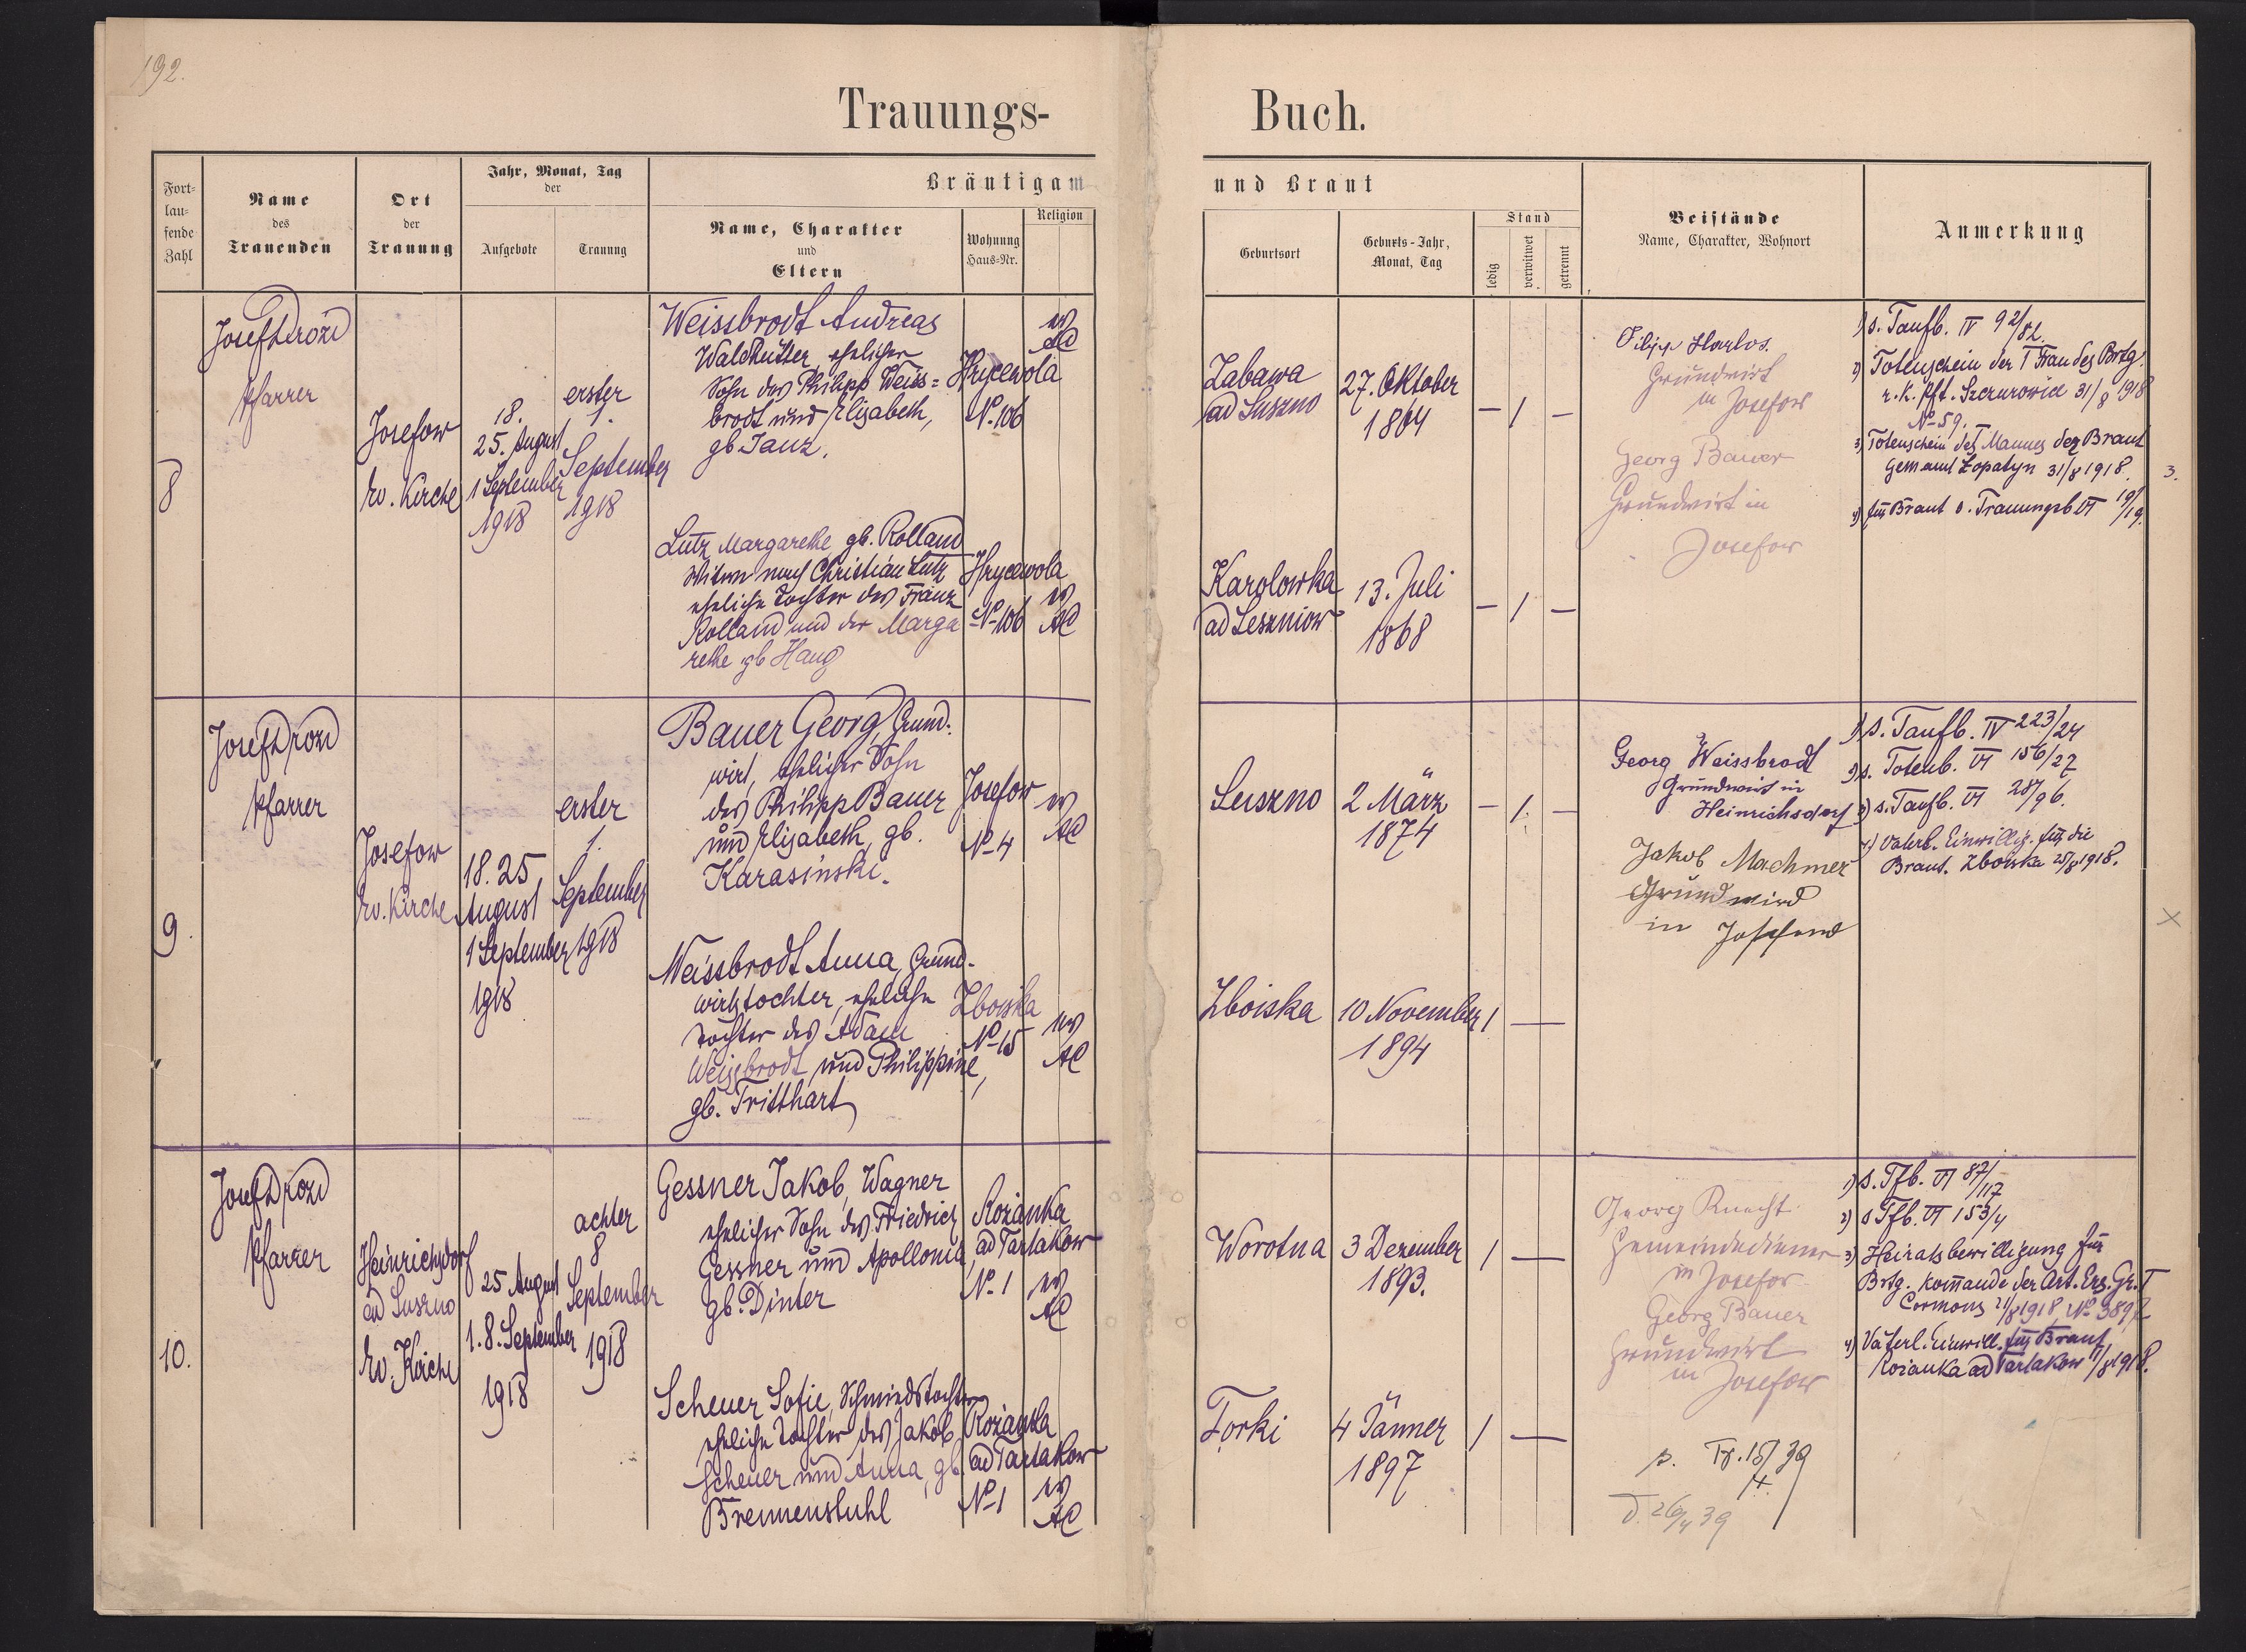 192.
Trauungs-
Buch.
Fort-
lau-
fende
Zahl
Name
des
Trauenden
Ort
der
Trauung
Jahr, Monat, Tag
der
Aufgebote
Trauung
Bräutigam
Name, Charakter
und
Eltern
Wohnung
Haus-Nr.
Religion
und Braut
Geburtsort
Geburts-Jahr,
Monat, Tag
Stand
ledig
verwitwet
getrennt
Beistände
Name, Charakter, Wohnort
Anmerkung
8
Josef Drozd
Pfarrer
Josefow
ev. Kirche
18.
25. August
1 September
1918
erster
1.
September
1918
Weissbrodt Andreas
Waldhüter, ehelicher
Sohn des Philipp Weiss=
brodt und Elisabeth,
gb Janz.
Hrycewola
No. 106
ev
AC
Zabawa
ad Suszno
27. Oktober
1864
– 1 –
Filipp Harlos.
Grundwirt
in Josefow
Georg Bauer
Grundwirt in
Josefow
1) s. Taufb. IV 92/82.
2) Totenschein der † Frau des Brtg.
r. k. Pft. Szczurowice 31/8 1918
No 59.
3) Totenschein des Mannes der Braut
Gem amt Łopatyn 31/8 1918.
4) für Braut s. Trauungsb VI 19/19.
3.
Lutz Margarethe gb. Rolland
Witwe nach Christian Lutz
eheliche Tochter des Franz
Rolland und der Marga
rethe gb Haug
Hrycewola
No 106
ev
AC
Karolowka
ad Leszniow
13. Juli
1868
– 1 –
9
Josef Drozd
Pfarrer
Josefow
ev. Kirche
18. 25.
August
1 September
1918
erster
1.
September
1918
Bauer Georg, Grund-
wirt, ehelicher Sohn
des Philipp Bauer
und Elisabeth, gb.
Karasinski.
Josefow
No 4
ev
AC
Suszno
2 März
1874
– 1 –
Georg Weissbrodt
Grundwirt in
Heinrichsdorf
Jakob Machmer
Grundwird
in
1) s. Taufb. IV 223/24
2) s. Totenb. VI 156/27
3) s. Taufb. VI 28/96.
4) Vaterl. Einwillig. für die
Braut. Zboiska 25/8 1918.
x
Weissbrodt Anna, Grund-
wirtstochter, eheliche
Tochter des Adam
Weissbrodt und Philippine,
gb. Tritthart
Zboiska
No 15
ev
AC
Zboiska
10 November
1894
1 —
10.
Josef Drozd
Pfarrer
Heinrichsdorf
ad Suszno
ev. Kirche
25 August
1. 8. September
1918
achter
8
September
1918
Gessner Jakob, Wagner
ehelicher Sohn des Friedrich
Gessner und Apollonia
gb. Dinter
Rozanka
ad Tartakow
No. 1
ev
AC
Worotna
3 Dezember
1893.
1 —
Georg Knecht
Gemeindediener
in Josefow
Georg Bauer
Grundwirt
in Josefow
1) s. Tfb. VI 87/117
2) s Tfb. VI 153/4
3) Heiratsbewilligung für
Brtg. Kommando der Art. Erg. Gr. I
Cormons 21/8 1918, No
4) Väterl. Einwill. für Braut
Rozanka ad Tartakow 11/8 1918.
Scheuer Sofie, Schmiedstochter
eheliche Tochter des Jakob
Scheuer und Anna, gb.
Brennenstuhl
Rozanka
ad Tartakow
No 1
ev
AC
Torki
4 Jänner
1897
1 —